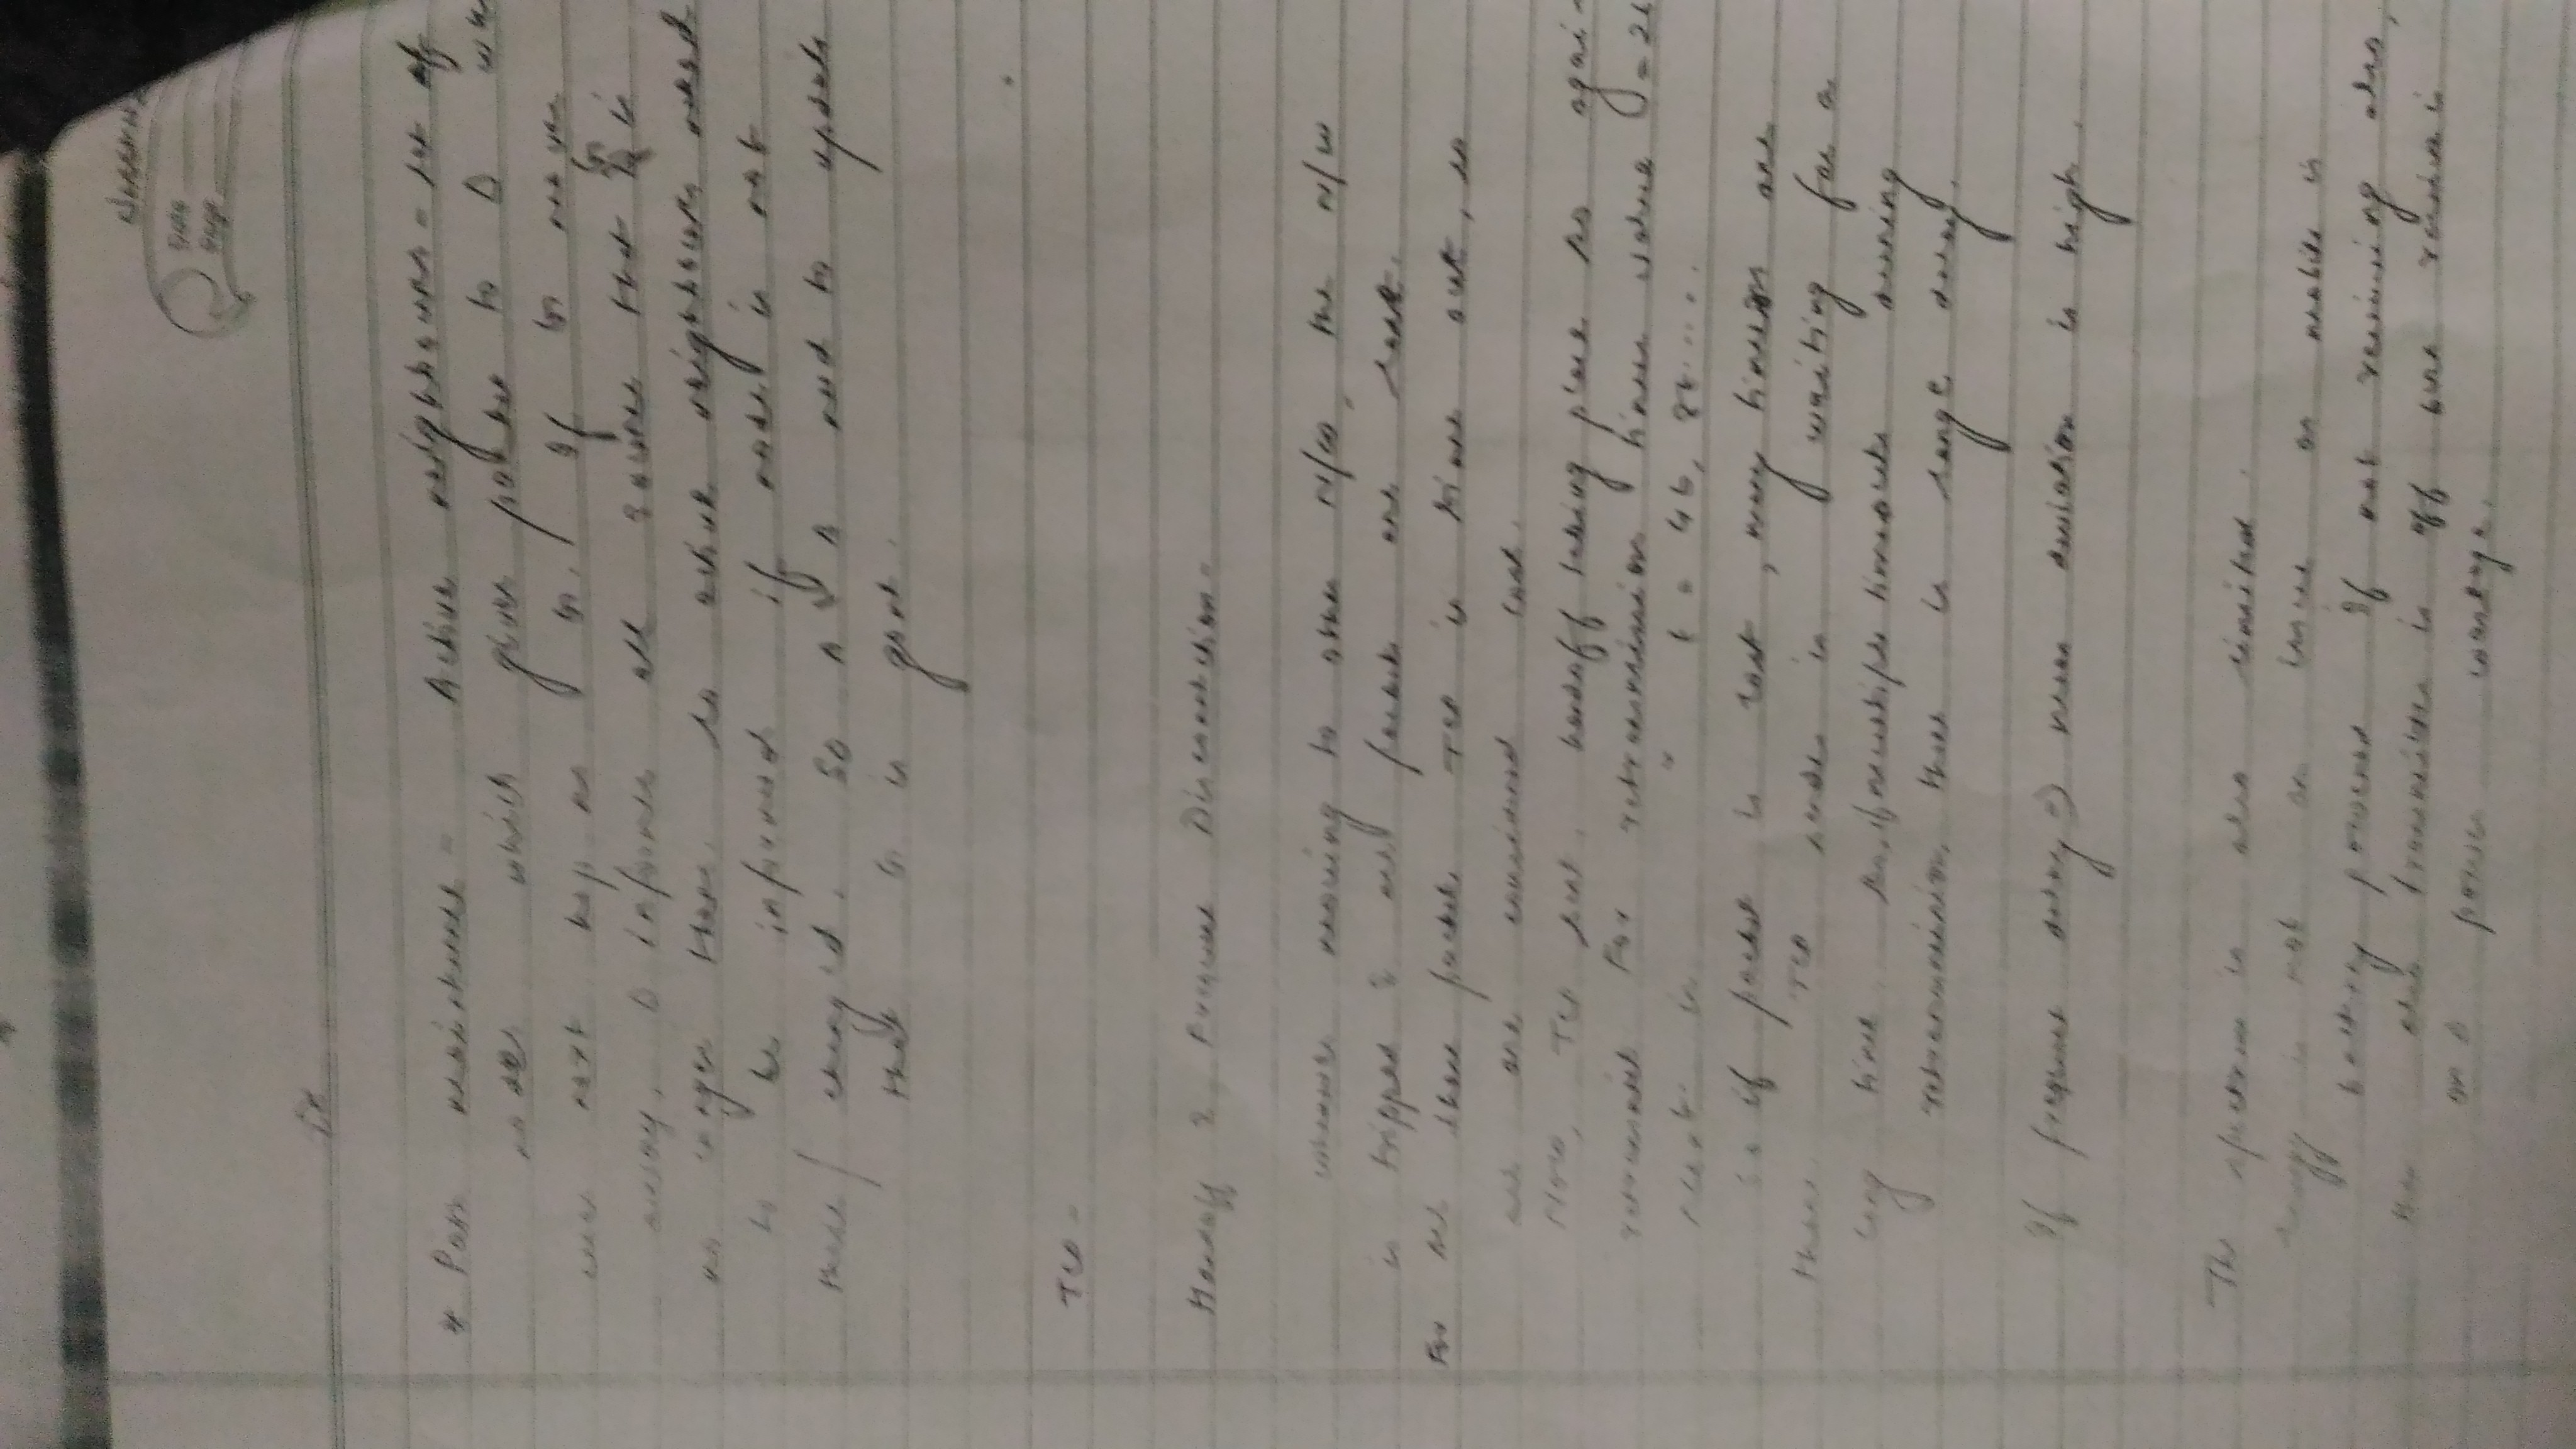 Date
Page
* Path maintenance - Active neighbours - set of
nodes which gives packet to D
next hop as G. If G moves
away, D informs all source that G is
no longer there. So active neighbours need
to be informed if node is not
there / changed. So A & A need to update
that G is gone.
TCP -
Handoff & Frequent Disconnection -
whenever moving to other N/w, the N/w
is tripped & all packets are lost.
For all these packets TCP is time out, so
all are considered lost.
Now, TCP handoff taking place so again
retransmit For retransmission timer value = 2t
Next is " t = 4t, 8t.....
So if packet is lost, many timeouts are
there. TCP sender is waiting for a
long time. So, if multiple timeouts during
retransmission, there is large delay.
If frequent delay => mean deviation is high.
The spectrum is also limited.
Energy is not an issue as mobile is
battery powered If not receiving also,
then also transmitter is off but receiver is
on & power wastage.